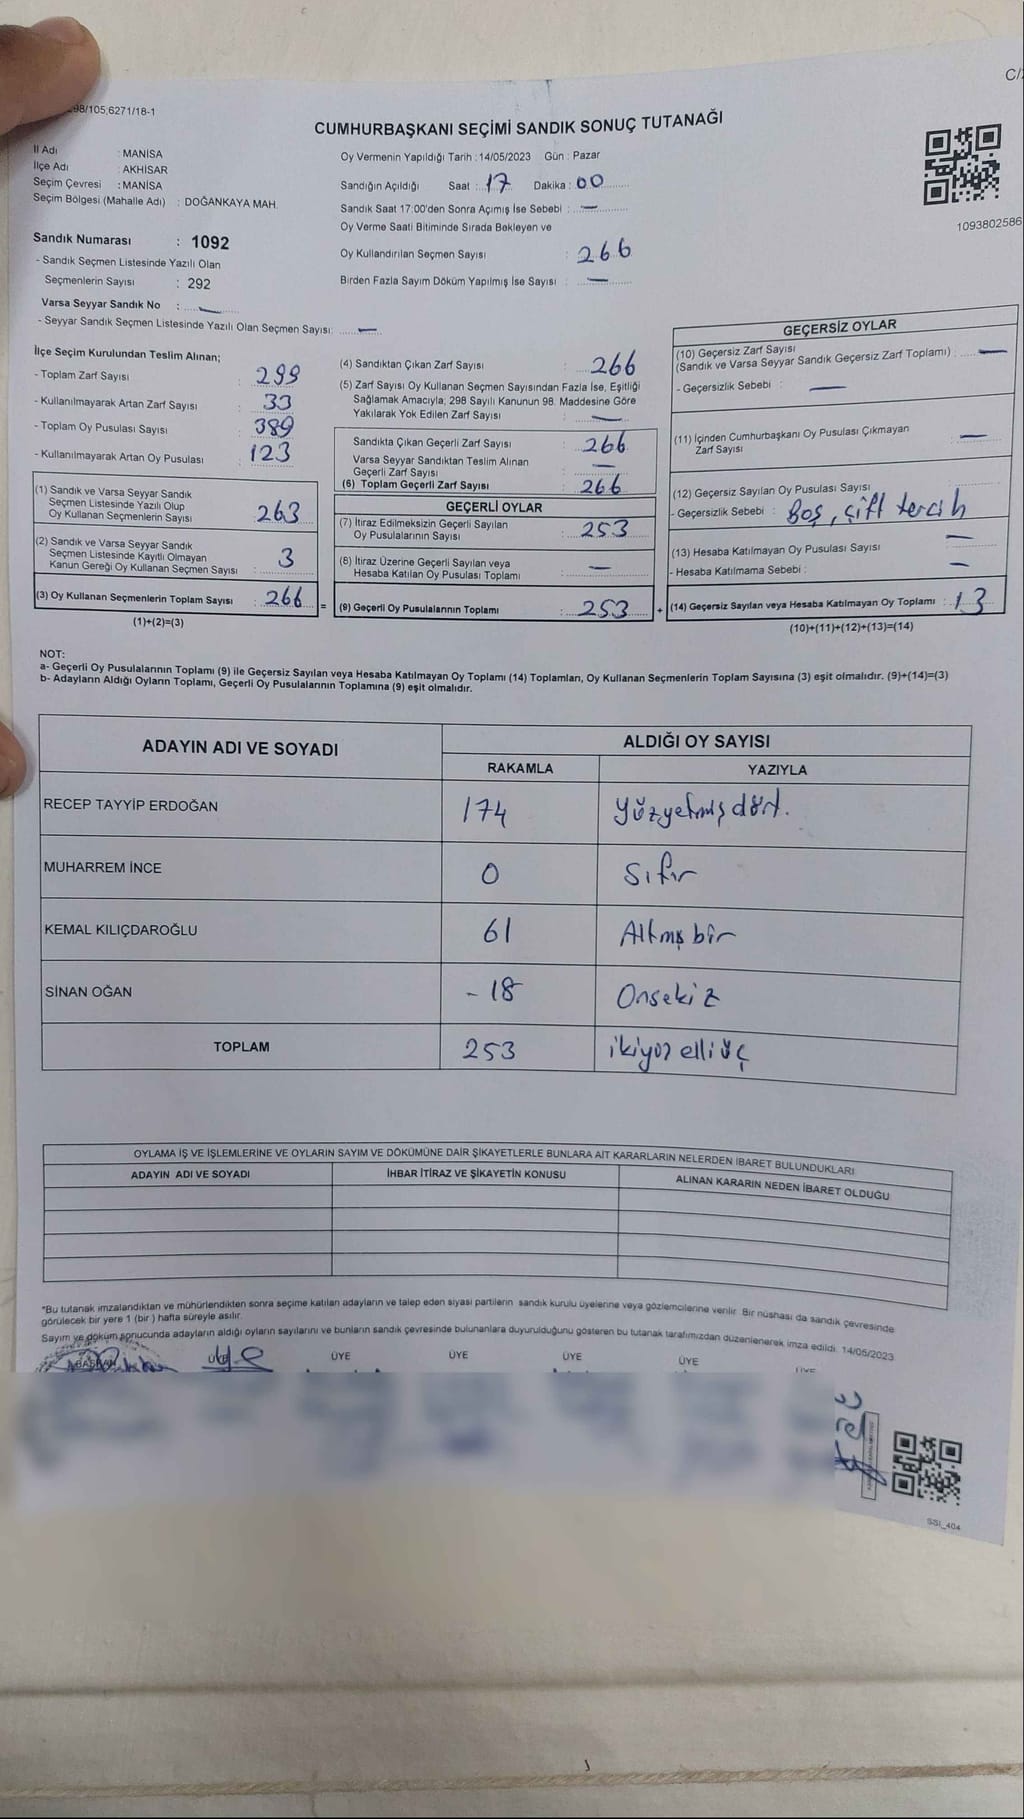 98/105;6271/18-1
C/
CUMHURBAŞKANI SEÇİMİ SANDIK SONUÇ TUTANAĞI
İl Adı : MANİSA
İlçe Adı : AKHİSAR
Seçim Çevresi : MANİSA
Seçim Bölgesi (Mahalle Adı) : DOĞANKAYA MAH.
Sandık Numarası : 1092
- Sandık Seçmen Listesinde Yazılı Olan
Seçmenlerin Sayısı : 292
Varsa Seyyar Sandık No : —
- Seyyar Sandık Seçmen Listesinde Yazılı Olan Seçmen Sayısı: —
Oy Vermenin Yapıldığı Tarih : 14/05/2023 Gün : Pazar
Sandığın Açıldığı Saat : 17 Dakika : 00
Sandık Saat 17:00'den Sonra Açımış İse Sebebi : —
Oy Verme Saati Bitiminde Sırada Bekleyen ve
Oy Kullandırılan Seçmen Sayısı : 266
Birden Fazla Sayım Döküm Yapılmış İse Sayısı : —
1093802586
İlçe Seçim Kurulundan Teslim Alınan;
- Toplam Zarf Sayısı : 299
- Kullanılmayarak Artan Zarf Sayısı : 33
- Toplam Oy Pusulası Sayısı : 389
- Kullanılmayarak Artan Oy Pusulası : 123
(1) Sandık ve Varsa Seyyar Sandık
Seçmen Listesinde Yazılı Olup
Oy Kullanan Seçmenlerin Sayısı : 263
(2) Sandık ve Varsa Seyyar Sandık
Seçmen Listesinde Kayıtlı Olmayan
Kanun Gereği Oy Kullanan Seçmen Sayısı : 3
(3) Oy Kullanan Seçmenlerin Toplam Sayısı : 266 =
(1)+(2)=(3)
(4) Sandıktan Çıkan Zarf Sayısı : 266
(5) Zarf Sayısı Oy Kullanan Seçmen Sayısından Fazla İse, Eşitliği
Sağlamak Amacıyla; 298 Sayılı Kanunun 98. Maddesine Göre
Yakılarak Yok Edilen Zarf Sayısı : —
Sandıkta Çıkan Geçerli Zarf Sayısı : 266
Varsa Seyyar Sandıktan Teslim Alınan
Geçerli Zarf Sayısı : —
(6) Toplam Geçerli Zarf Sayısı : 266
GEÇERLİ OYLAR
(7) İtiraz Edilmeksizin Geçerli Sayılan
Oy Pusulalarının Sayısı : 253
(8) İtiraz Üzerine Geçerli Sayılan veya
Hesaba Katılan Oy Pusulası Toplamı : —
(9) Geçerli Oy Pusulalarının Toplamı : 253 +
GEÇERSİZ OYLAR
(10) Geçersiz Zarf Sayısı
(Sandık ve Varsa Seyyar Sandık Geçersiz Zarf Toplamı) : —
- Geçersizlik Sebebi : —
(11) İçinden Cumhurbaşkanı Oy Pusulası Çıkmayan
Zarf Sayısı —
(12) Geçersiz Sayılan Oy Pusulası Sayısı :
- Geçersizlik Sebebi : Boş, çift tercih
(13) Hesaba Katılmayan Oy Pusulası Sayısı —
- Hesaba Katılmama Sebebi : —
(14) Geçersiz Sayılan veya Hesaba Katılmayan Oy Toplamı : 13
(10)+(11)+(12)+(13)=(14)
NOT:
a- Geçerli Oy Pusulalarının Toplamı (9) ile Geçersiz Sayılan veya Hesaba Katılmayan Oy Toplamı (14) Toplamları, Oy Kullanan Seçmenlerin Toplam Sayısına (3) eşit olmalıdır. (9)+(14)=(3)
b- Adayların Aldığı Oyların Toplamı, Geçerli Oy Pusulalarının Toplamına (9) eşit olmalıdır.
ADAYIN ADI VE SOYADI
ALDIĞI OY SAYISI
RAKAMLA YAZIYLA
RECEP TAYYİP ERDOĞAN 174 Yüzyetmiş dört.
MUHARREM İNCE 0 Sıfır
KEMAL KILIÇDAROĞLU 61 Altmış bir
SİNAN OĞAN - 18 Onsekiz
TOPLAM 253 ikiyüz elli üç
OYLAMA İŞ VE İŞLEMLERİNE VE OYLARIN SAYIM VE DÖKÜMÜNE DAİR ŞİKAYETLERLE BUNLARA AİT KARARLARIN NELERDEN İBARET BULUNDUKLARI
ADAYIN ADI VE SOYADI İHBAR İTİRAZ VE ŞİKAYETİN KONUSU ALINAN KARARIN NEDEN İBARET OLDUĞU
*Bu tutanak imzalandıktan ve mühürlendikten sonra seçime katılan adayların ve talep eden siyasi partilerin sandık kurulu üyelerine veya gözlemcilerine verilir. Bir nüshası da sandık çevresinde
görülecek bir yere 1 (bir) hafta süreyle asılır.
Sayım ve döküm sonucunda adayların aldığı oyların sayılarını ve bunların sandık çevresinde bulunanlara duyurulduğunu gösteren bu tutanak tarafımızdan düzenlenerek imza edildi. 14/05/2023
BAŞKAN ÜYE ÜYE ÜYE ÜYE ÜYE ÜYE
SSI_404